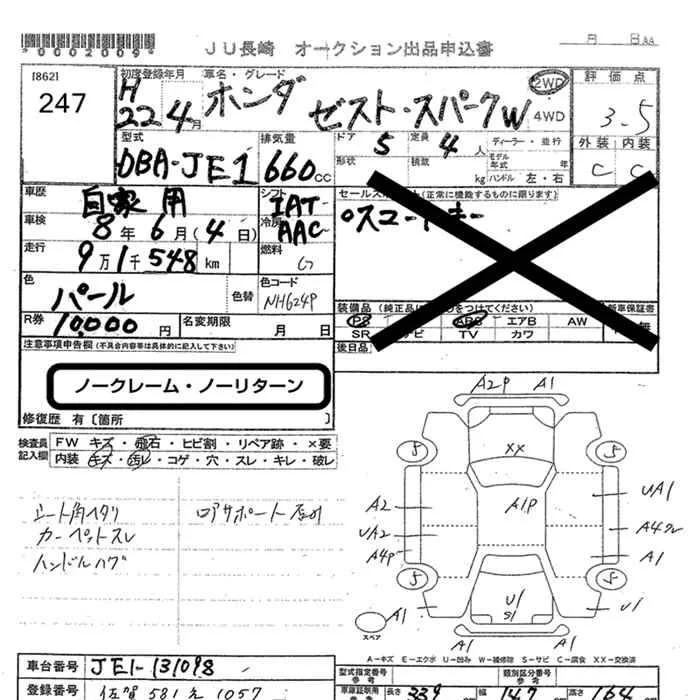 *0002009*
JU長崎 オークション出品申込書
月 日
[862]
247
初度登録年月 車名・グレード
H 22 4月 ホンダ ゼスト・スパークW
2WD
4WD
評価点
3-5
外装 内装
C C
型式 DBA-JE1
排気量 660 CC
ドア 5 定員 4 人 ディーラー・並行
形状 積載 kg モデル年式 年
ハンドル 左・右
車歴 自家用
シフト IAT
車検 8年 6月(4日)
冷房 AAC
走行 9万1千548 km
燃料 G
セールスポイント(正常に機能するものに限ります)
色 パール 色替
色コード NH624P
R券 10,000 円 名変期限 月 日
装備品
新車保証書
PS ABS エアB AW 無
SR ナビ TV カワ
後日品
注意事項申告欄(不具合内容等は具体的に記入して下さい)
ノークレーム・ノーリターン
修復歴 有〔箇所 〕
検査員記入欄
FW キズ・飛石・ヒビ割・リペア跡・×要
内装 キズ・汚レ・コゲ・穴・スレ・キレ・破レ
シート角ヘタリ
カーペットスレ
ハンドルハゲ
A2P A1
5 XX 5
A2 A1P UA1
UA2 A4
A4P A1
5 5
A1 U1 S1 U1
スペア
A1 A1
A-キズ E-エクボ U-凹み W-補修跡 S-サビ C-腐食 XX-交換済
車台番号 JE1-131098
登録番号 佐賀 581 え 1057
型式指定番号 類別区分番号
参考 参考
長さ 339 幅 147 高さ 164